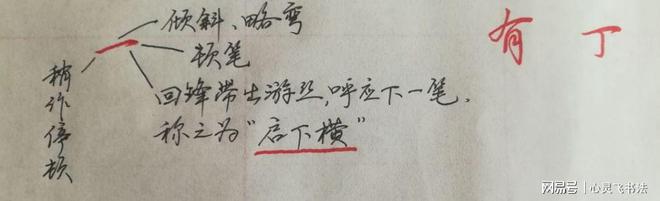 倾斜、略弯
顿笔
稍作停顿
回锋带出游丝,呼应下一笔,
称之为"启下横"
有 丁
网易号 | 心灵飞书法